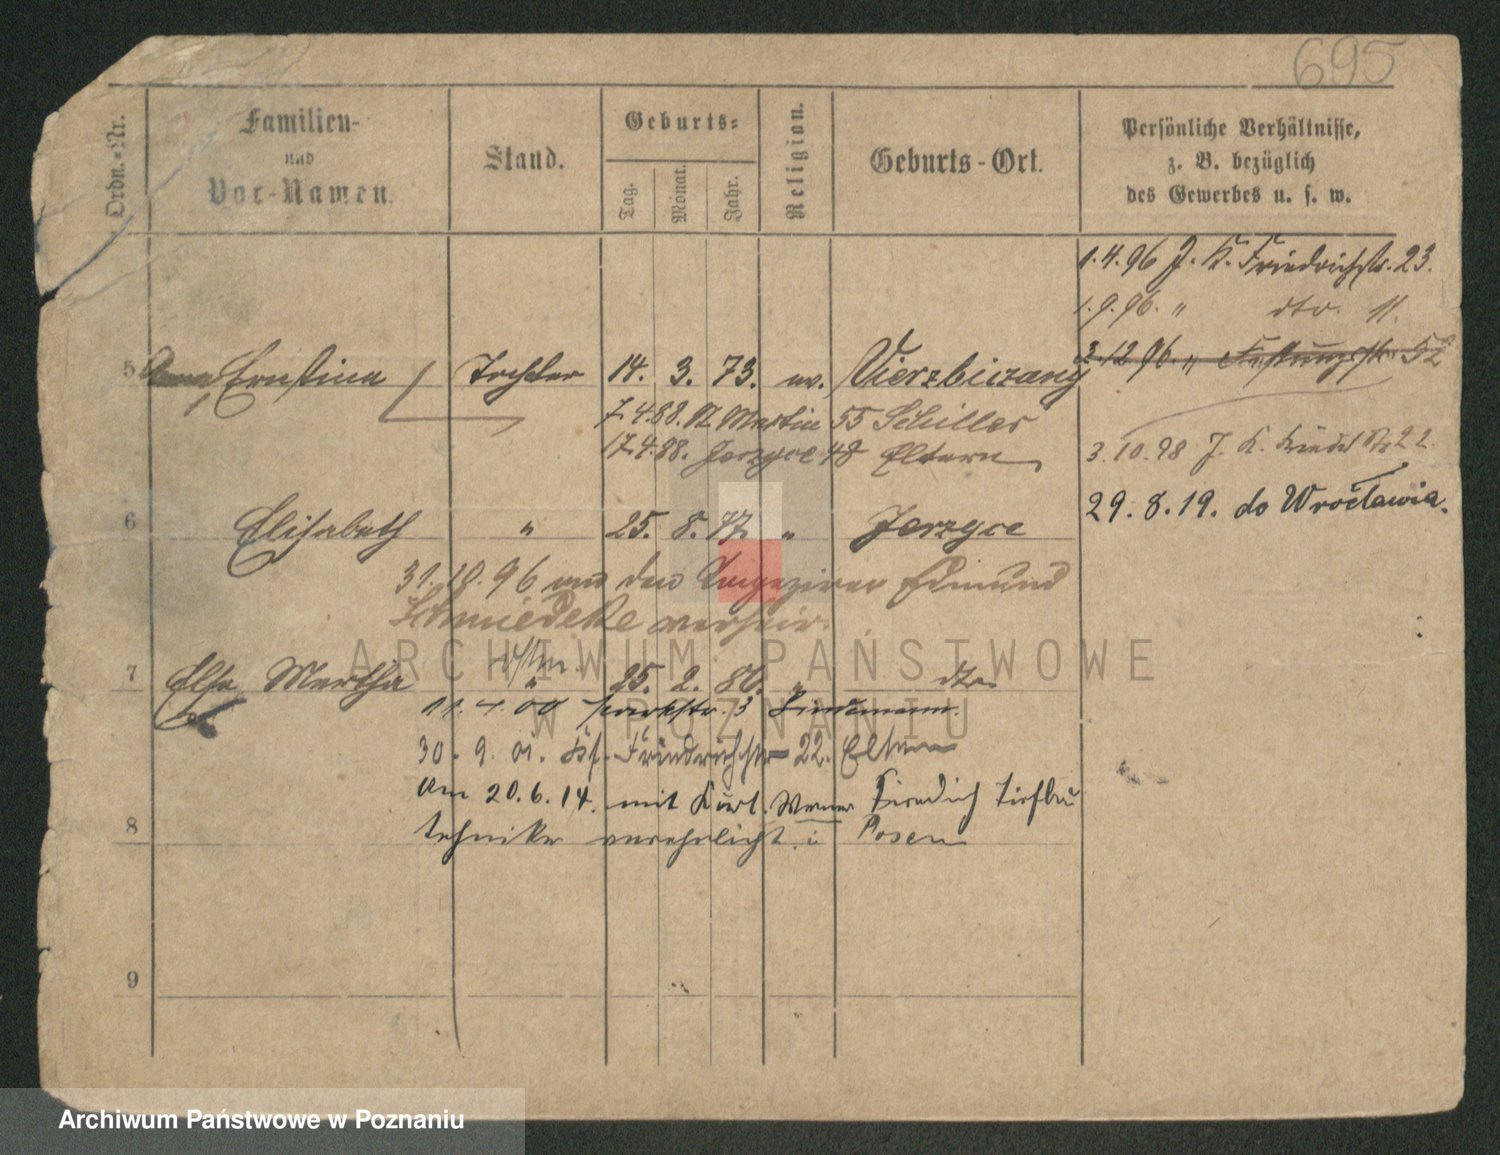 695
Ordn.-Nr.
Familien-
und
Vor-Namen.
Stand.
Geburts-
Tag.
Monat.
Jahr.
Religion.
Geburts-Ort.
Persönliche Verhältnisse,
z. B. bezüglich
des Gewerbes u. s. w.
1.4.96 J. K. Friedrichstr. 23.
1.9.96. " dto. 11.
2.12.96. " Festungsstr. 52
5 Anna Ernstina Tochter 14. 3. 73. ev. Vierzbiczany
7.4.88. St. Martin 55 Schiller
17.4.88. Jerzyce 48 Eltern
3.10.98 J. K. 22.
29.8.19. do Wrocławia.
6 Elisabeth " 25. 8. 77. " Jerzyce
31.10.96 den Edmund
Schmiedeke verheir.
7 Else Martha " 25. 2. 80. " dto.
11.4.00 Parkstr. 3 Lindemann.
30.9.01. Friedrichstr 22. Eltern
Am 20.6.14. mit Kurt Werner Tiefbau
8 techniker verehelicht i Posen
9
ARCHIWUM PAŃSTWOWE
W POZNANIU
Archiwum Państwowe w Poznaniu